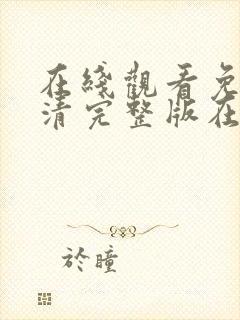 在綫觀看免
清完整版在
於瞳